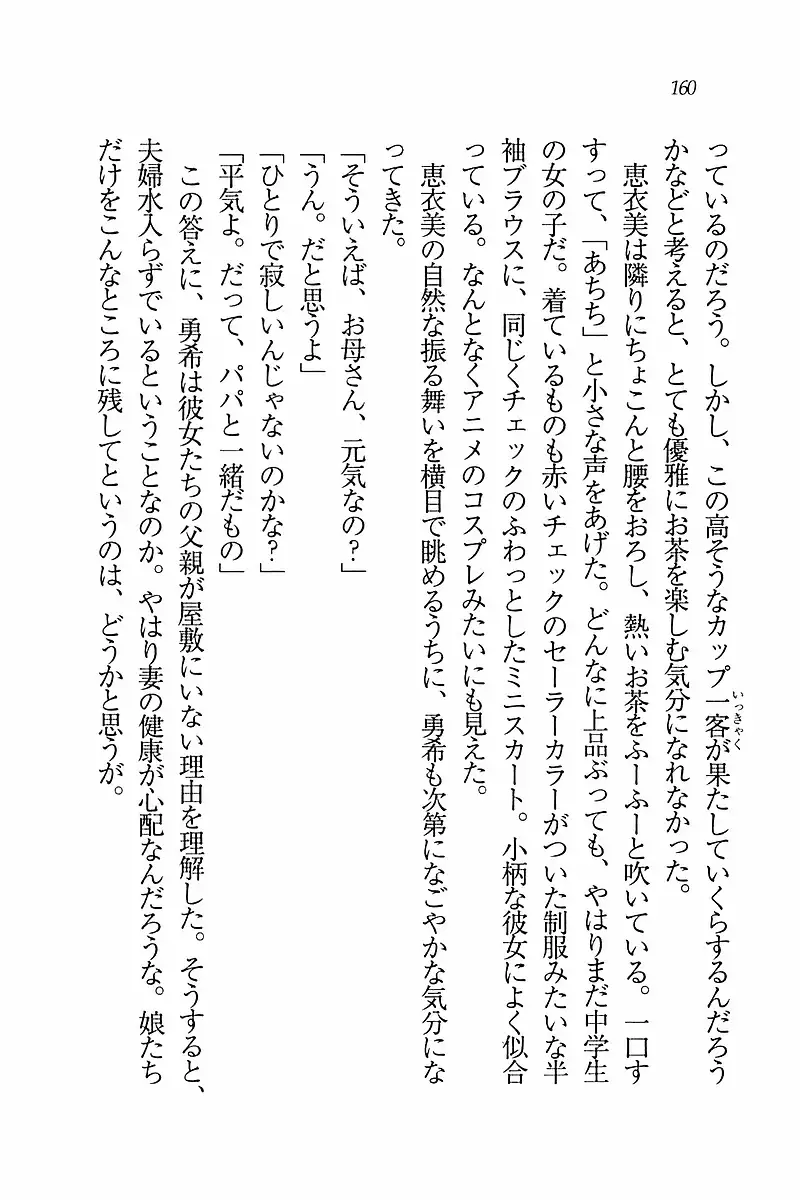 160
っているのだろう。しかし、この高そうなカップ一客が果たしていくらするんだろう
いっきゃく
かなどと考えると、とても優雅にお茶を楽しむ気分になれなかった。
恵衣美は隣りにちょこんと腰をおろし、熱いお茶をふーふーと吹いている。一口す
すって、「あちち」と小さな声をあげた。どんなに上品ぶっても、やはりまだ中学生
の女の子だ。着ているものも赤いチェックのセーラーカラーがついた制服みたいな半
袖ブラウスに、同じくチェックのふわっとしたミニスカート。小柄な彼女によく似合
っている。なんとなくアニメのコスプレみたいにも見えた。
恵衣美の自然な振る舞いを横目で眺めるうちに、勇希も次第になごやかな気分にな
ってきた。
「そういえば、お母さん、元気なの？」
「うん。だと思うよ」
「ひとりで寂しいんじゃないのかな？」
「平気よ。だって、パパと一緒だもの」
この答えに、勇希は彼女たちの父親が屋敷にいない理由を理解した。そうすると、
夫婦水入らずでいるということなのか。やはり妻の健康が心配なんだろうな。娘たち
だけをこんなところに残してというのは、どうかと思うが。